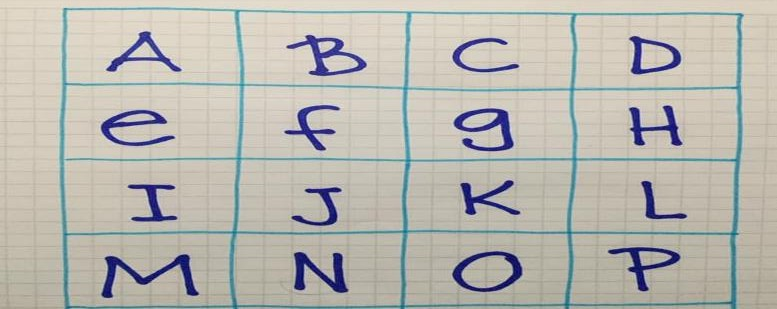 A B C D
e f g H
I J K L
M N O P